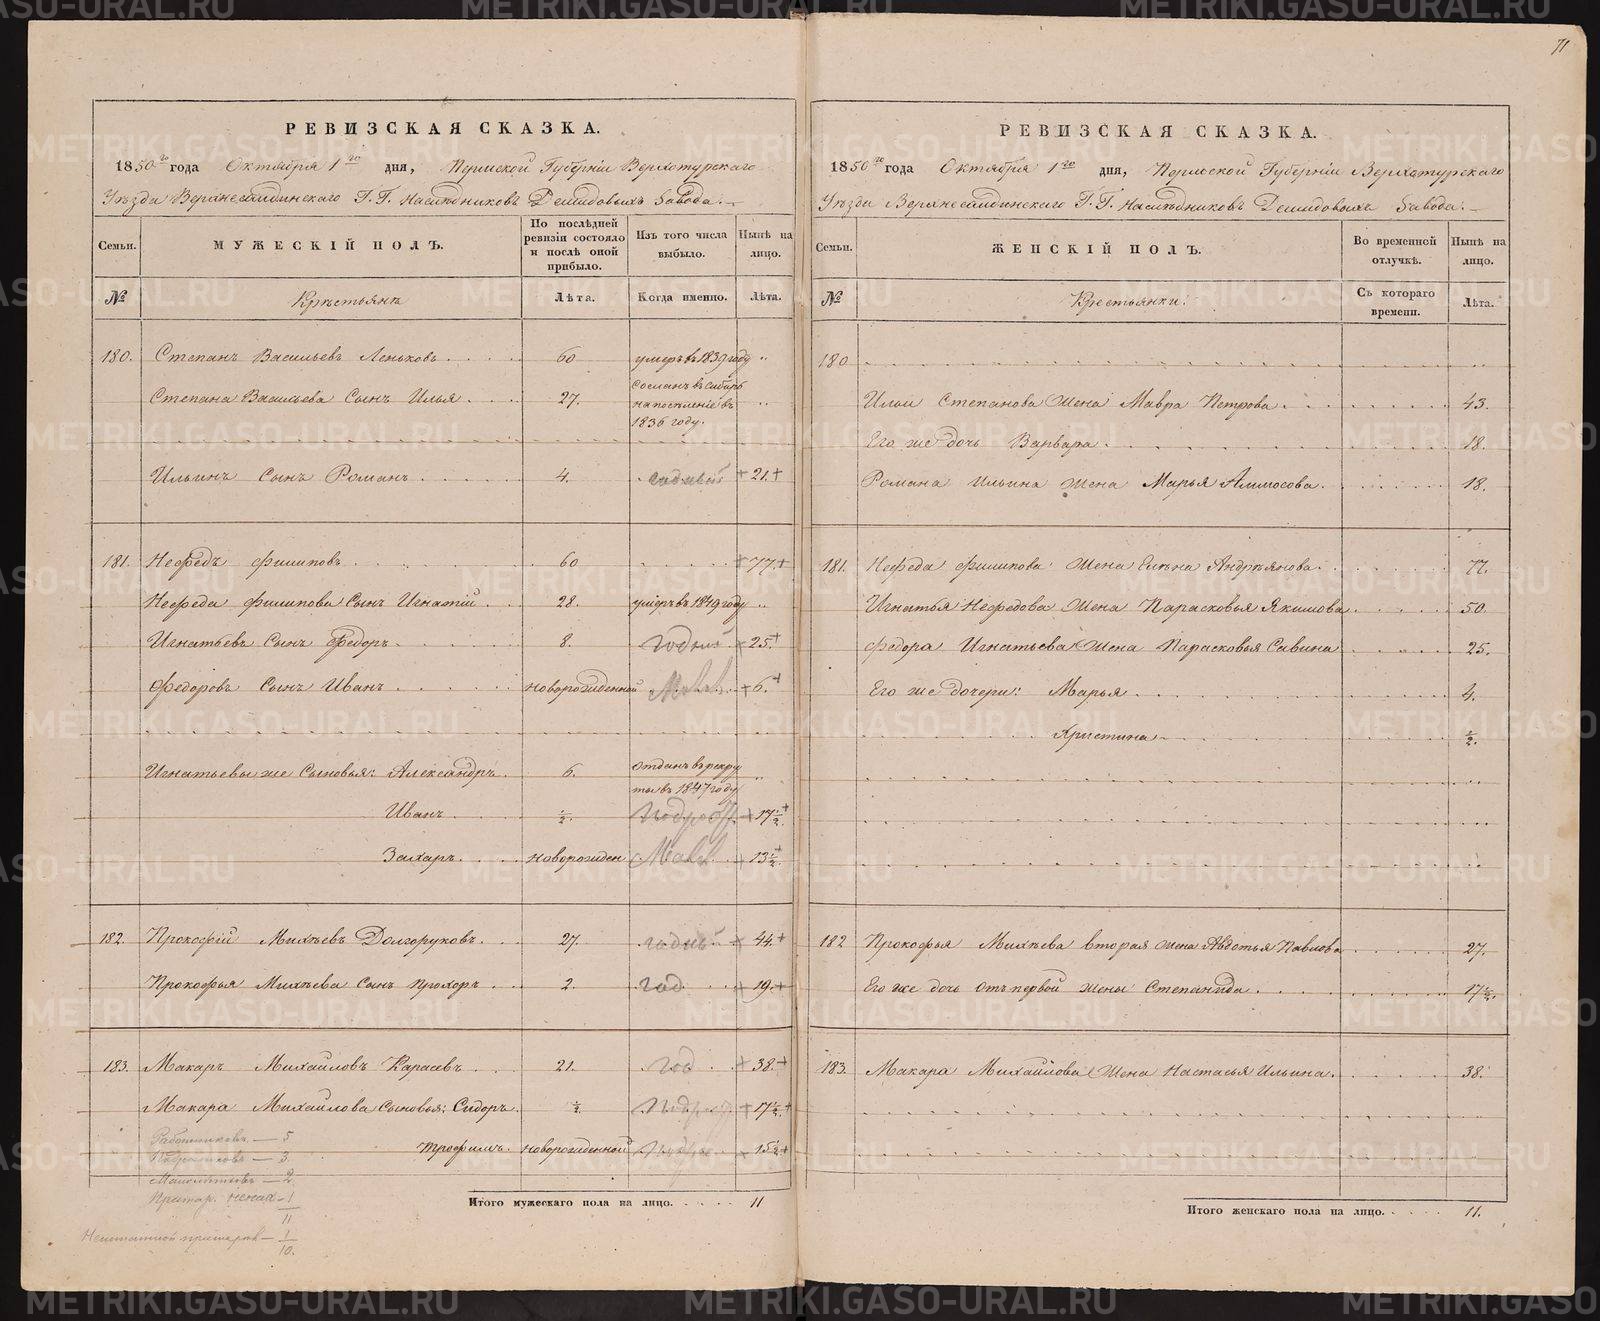 71
РЕВИЗСКАЯ СКАЗКА.
1850го года Октября 1го дня, Пермской Губерніи Верхотурскаго
Уѣзда Верхнесалдинскаго Г.Г. Наслѣдниковъ Демидовыхъ Завода.
Семьи. МУЖЕСКІЙ ПОЛЪ. По послѣдней ревизіи состояло и послѣ оной прибыло. Изъ того числа выбыло. Нынѣ на лицо.
№ Крѣстьянѣ Лѣта. Когда именно. Лѣта.
180. Степанъ Васильевъ Леньковъ. 60 умеръ въ 1839 году "
Степана Васильева Сынъ Илья. 27. сосланъ въ сибирь на поселеніе въ 1836 году. "
Ильинъ Сынъ Романъ. 4. годный +21.+
181. Нефедъ Филиповъ. 60 +77.+
Нефеда Филипова Сынъ Игнатій. 28. умеръ въ 1849 году "
Игнатьевъ Сынъ Федоръ. 8. годный 25.+
Федоровъ Сынъ Иванъ. новорожденной +6.+
Игнатьевы же Сыновья: Александръ. 6. отданъ въ рекруты въ 1847 году "
Иванъ. ½. +17½.+
Захаръ. новорожден 13½.+
182. Прокофій Михѣевъ Долгоруковъ. 27. годный 44.+
Прокофья Михѣева Сынъ Прохоръ. 2. год +19.+
183. Макаръ Михайловъ Карасевъ. 21. год +38.+
Макара Михайлова Сыновья: Сидоръ. ½ +17½.+
Трофимъ. новорожденной 15½+
Работниковъ — 5
— 3
Малолѣтковъ — 2
— 1
11
— 1
10.
Итого мужескаго пола на лицо. 11
РЕВИЗСКАЯ СКАЗКА.
1850го года Октября 1го дня, Пермской Губерніи Верхотурскаго
Уѣзда Верхнесалдинскаго Г.Г. Наслѣдниковъ Демидовыхъ Завода.
Семьи. ЖЕНСКІЙ ПОЛЪ. Во временной отлучкѣ. Нынѣ на лицо.
№ Крестьянки. Съ котораго времени. Лѣта.
180 "
Ильи Степанова Жена Мавра Петрова. 43.
Его же дочь Варвара. 18.
Романа Ильина жена Марья Аммосова. 18.
181. Нефеда Филипова Жена Елѣна Андрѣянова. 77.
Игнатья Нефедова Жена Парасковья Якимова. 50.
Федора Игнатьева Жена Парасковья Савина 25.
Его же дочери: Марья. 4.
Христина. ½.
182 Прокофья Михѣева вторая жена Авдотья Павлова 27.
Его же дочь отъ первой жены Степанида. 17½.
183. Макара Михайлова Жена Настасья Ильина. 38.
Итого женскаго пола на лицо. 11.
METRIKI.GASO-URAL.RU